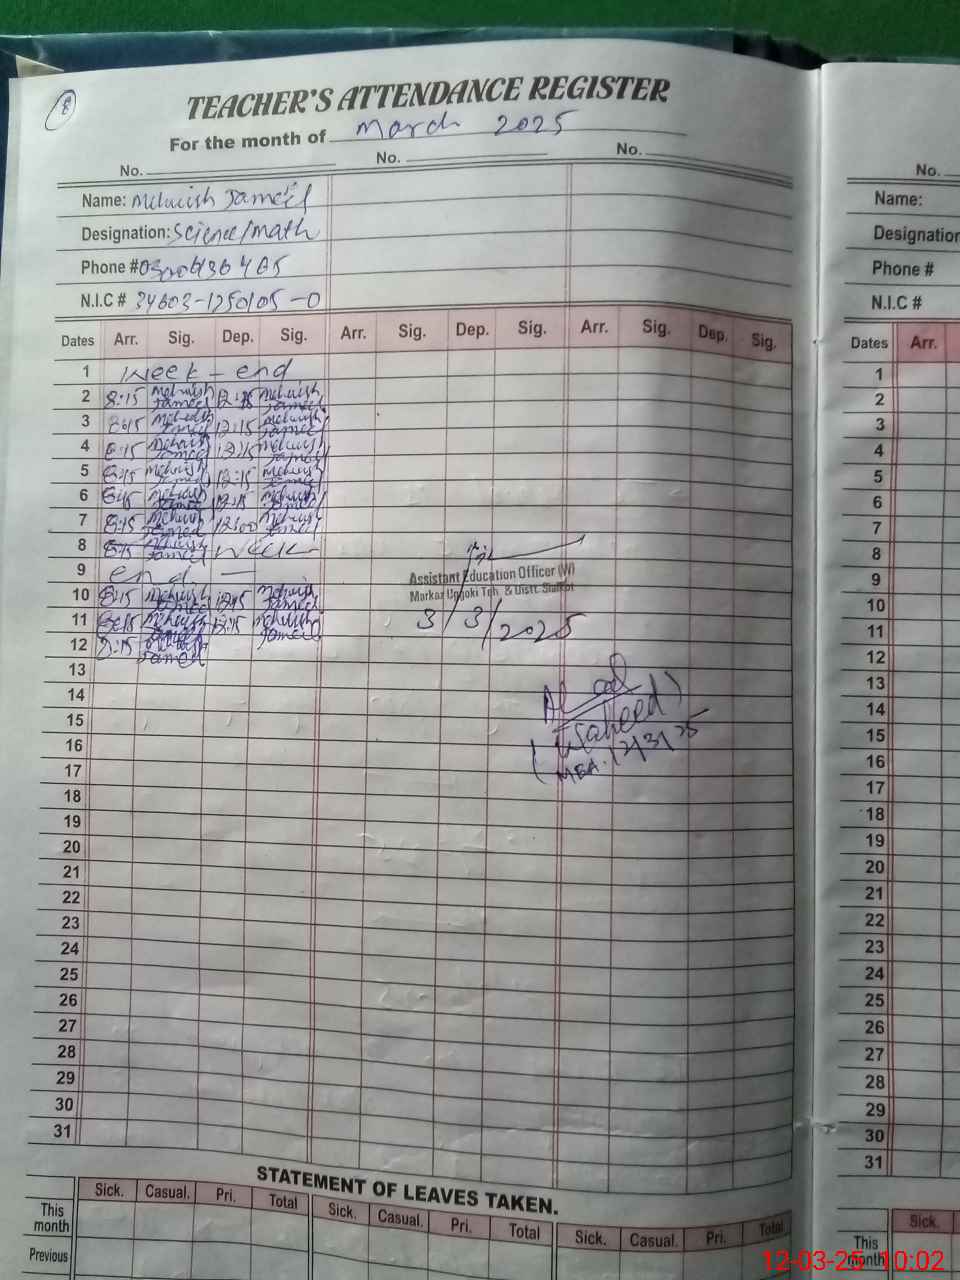 8
TEACHER'S ATTENDANCE REGISTER
For the month of March 2025
No. No. No. No.
Name: Mehwish Jameel Name:
Designation: Science/math Designation
Phone # Phone #
N.I.C # 34603-1250105-0 N.I.C #
Dates Arr. Sig. Dep. Sig. Arr. Sig. Dep. Sig. Arr. Sig. Dep. Sig. Dates Arr.
1 Week - end 1
2 8:15 Mehwish Jameel Mehwish Jameel 2
3 8:15 Mehwish Jameel 12:15 Mehwish Jameel 3
4 8:15 Mehwish Jameel 12:15 Mehwish Jameel 4
5 8:15 Mehwish Jameel 12:15 Mehwish Jameel 5
6 8:15 Mehwish Jameel 12:15 Mehwish Jameel 6
7 8:15 Mehwish Jameel 12:00 Mehwish Jameel 7
8 8:15 Mehwish Jameel Week 8
9 end - 9
10 8:15 Mehwish Jameel 12:15 Mehwish Jameel 10
11 8:15 Mehwish Jameel 12:15 Mehwish Jameel 11
12 8:15 Mehwish Jameel 12
Assistant Education Officer (W)
Markaz Ugoki Teh & Distt. Sialkot
3/3/2025
13 13
14 14
15 15
(Waheed)
MEA. 12/3/25
16 16
17 17
18 18
19 19
20 20
21 21
22 22
23 23
24 24
25 25
26 26
27 27
28 28
29 29
30 30
31 31
STATEMENT OF LEAVES TAKEN.
Sick. Casual. Pri. Total Sick. Casual. Pri. Total Sick. Casual. Pri. Total Sick.
This month This month
Previous
12-03-25 10:02